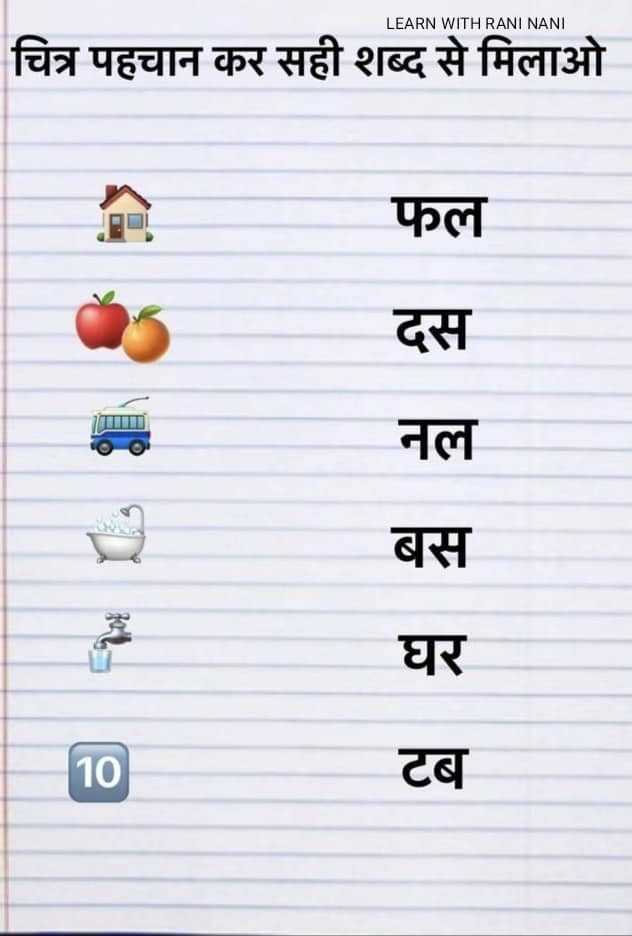 LEARN WITH RANI NANI
चित्र पहचान कर सही शब्द से मिलाओ
फल
दस
नल
बस
घर
10
टब